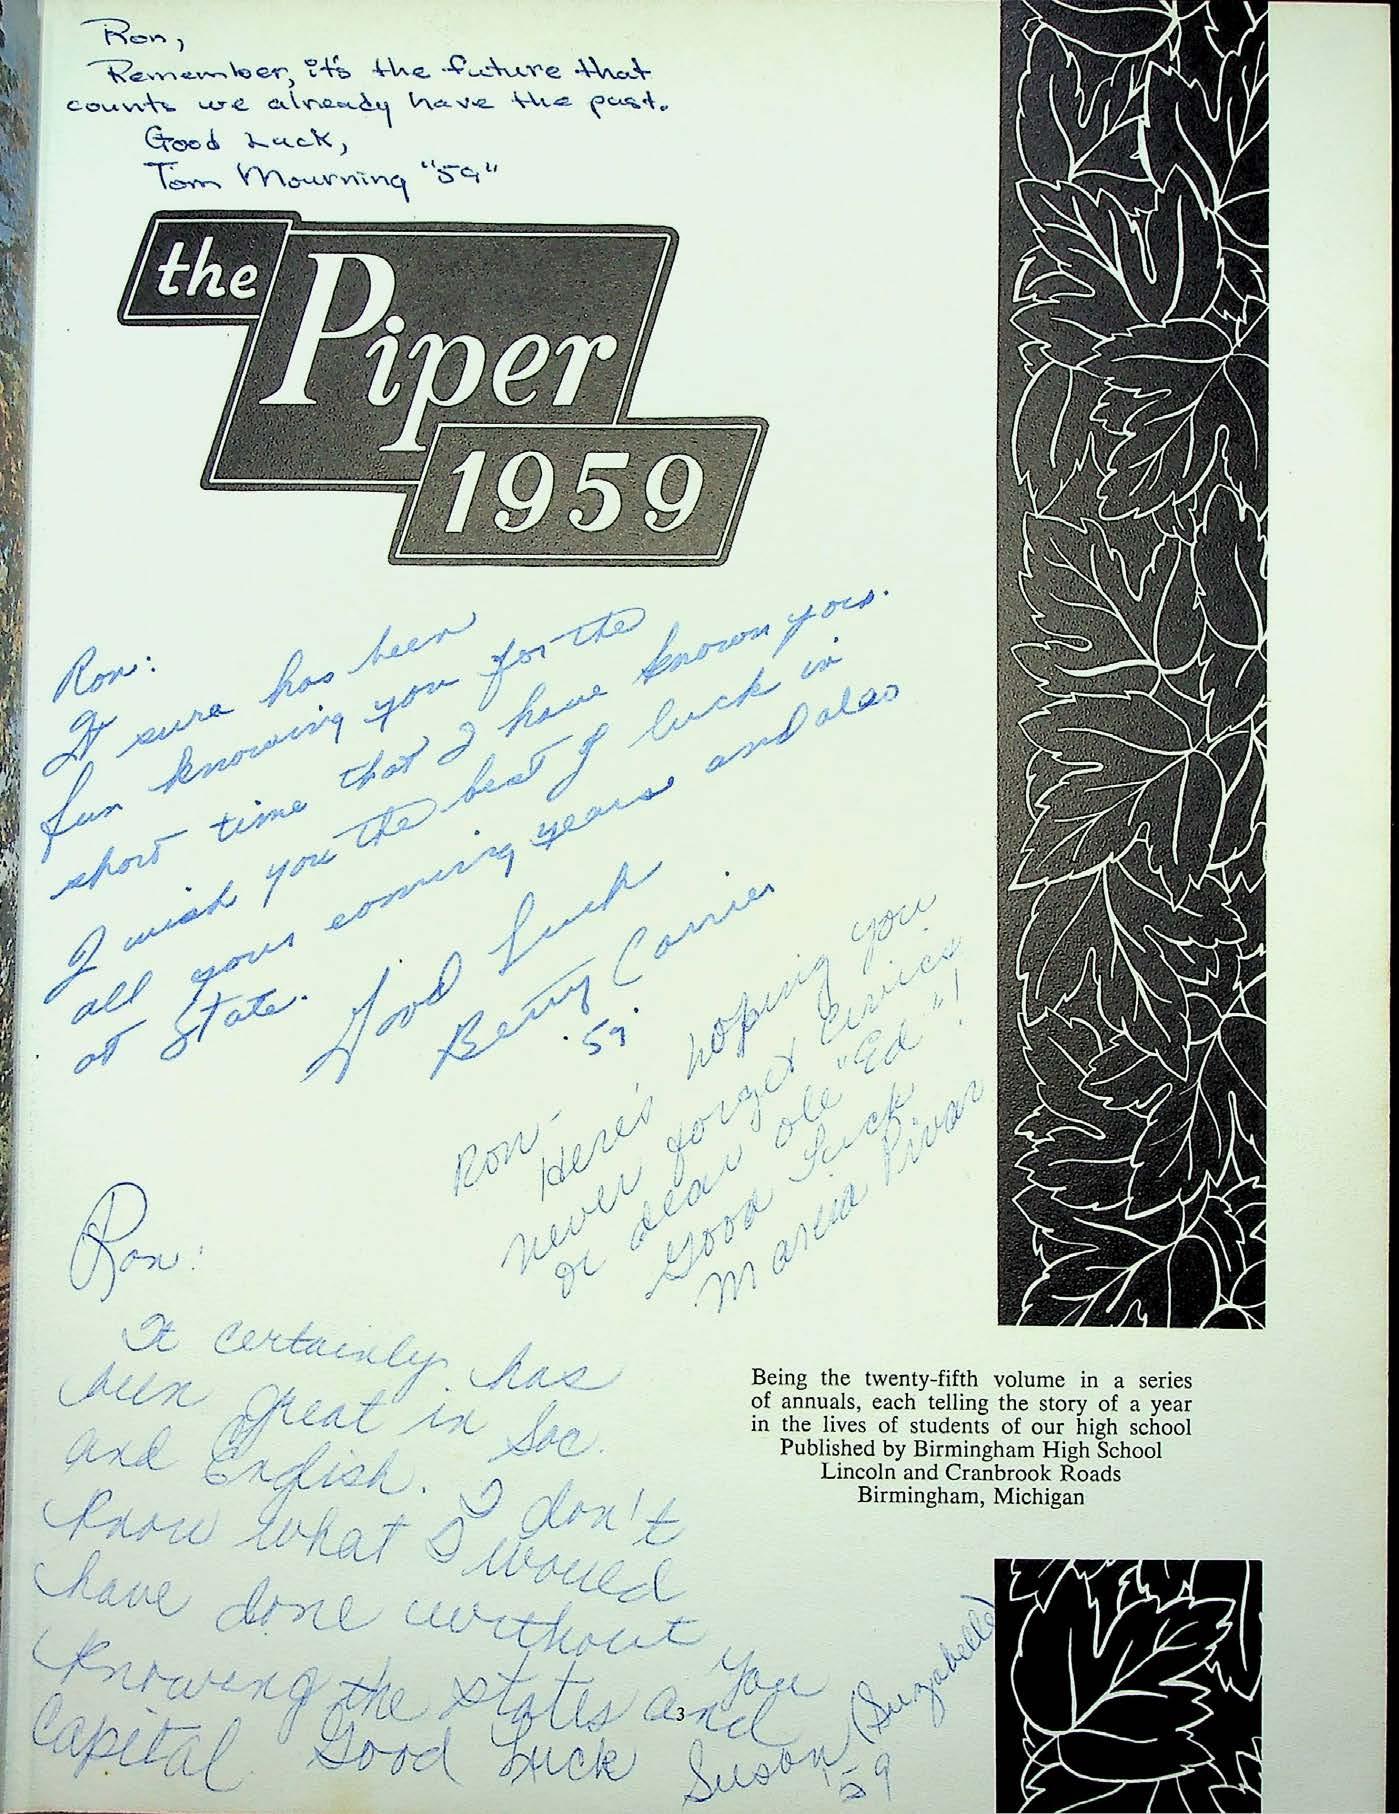 Ron,
Remember, it's the future that
counts we already have the past.
Good Luck,
Tom Mourning "59"
the
Piper
1959
Ron:
It sure has been
fun knowing you for the
short time that I have known you.
I wish you the best of luck in
all your coming years and also
at State.
Good Luck
Betty Carrier
'59'
Ron-
Here's hoping you
never forget Civics
or dear ole "Ed"!
Good Luck
Marcia Pivar
Ron:
It certainly has
been great in Soc.
and English. I don't
know what I would
have done without you
knowing the states and
Capital. Good Luck
Susan (Suzabelle)
'59
Being the twenty-fifth volume in a series
of annuals, each telling the story of a year
in the lives of students of our high school
Published by Birmingham High School
Lincoln and Cranbrook Roads
Birmingham, Michigan
3